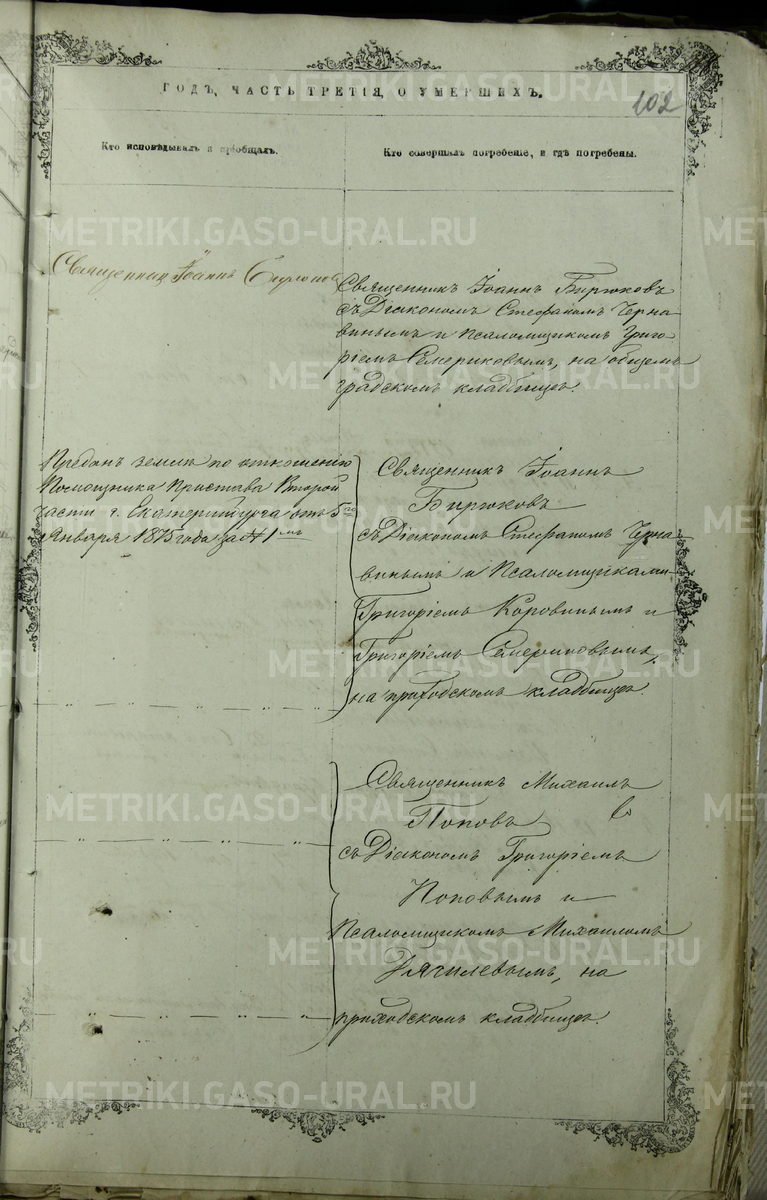 ГОДЪ, ЧАСТЬ ТРЕТІЯ, О УМЕРШИХЪ.
102
Кто исповѣдывалъ и пріобщалъ.
Кто совершалъ погребеніе, и гдѣ погребены.
Священник Іоаннъ
Священникъ Іоаннъ Бирюковъ
съ Діакономъ Стефаномъ Черна-
винымъ и Псаломщикомъ Григо-
ріемъ Семериковымъ, на общемъ
градскомъ кладбищѣ.
Преданъ землѣ по отношенію
Помощника Пристава Второй
части г. Екатеринбурга отъ 5го
Января 1875 года за № 1мъ
Священникъ Іоаннъ
Бирюковъ
съ Діакономъ Стефаномъ Черна-
винымъ и Псаломщиками
Григоріемъ Коровинымъ и
Григоріемъ Семериковымъ,
на приходскомъ кладбищѣ.
Священникъ Михаилъ
Поповъ
съ Діакономъ Григоріемъ
Поповымъ и
Псаломщикомъ Михаиломъ
Удячилевымъ, на
приходскомъ кладбищѣ.
METRIKI.GASO-URAL.RU